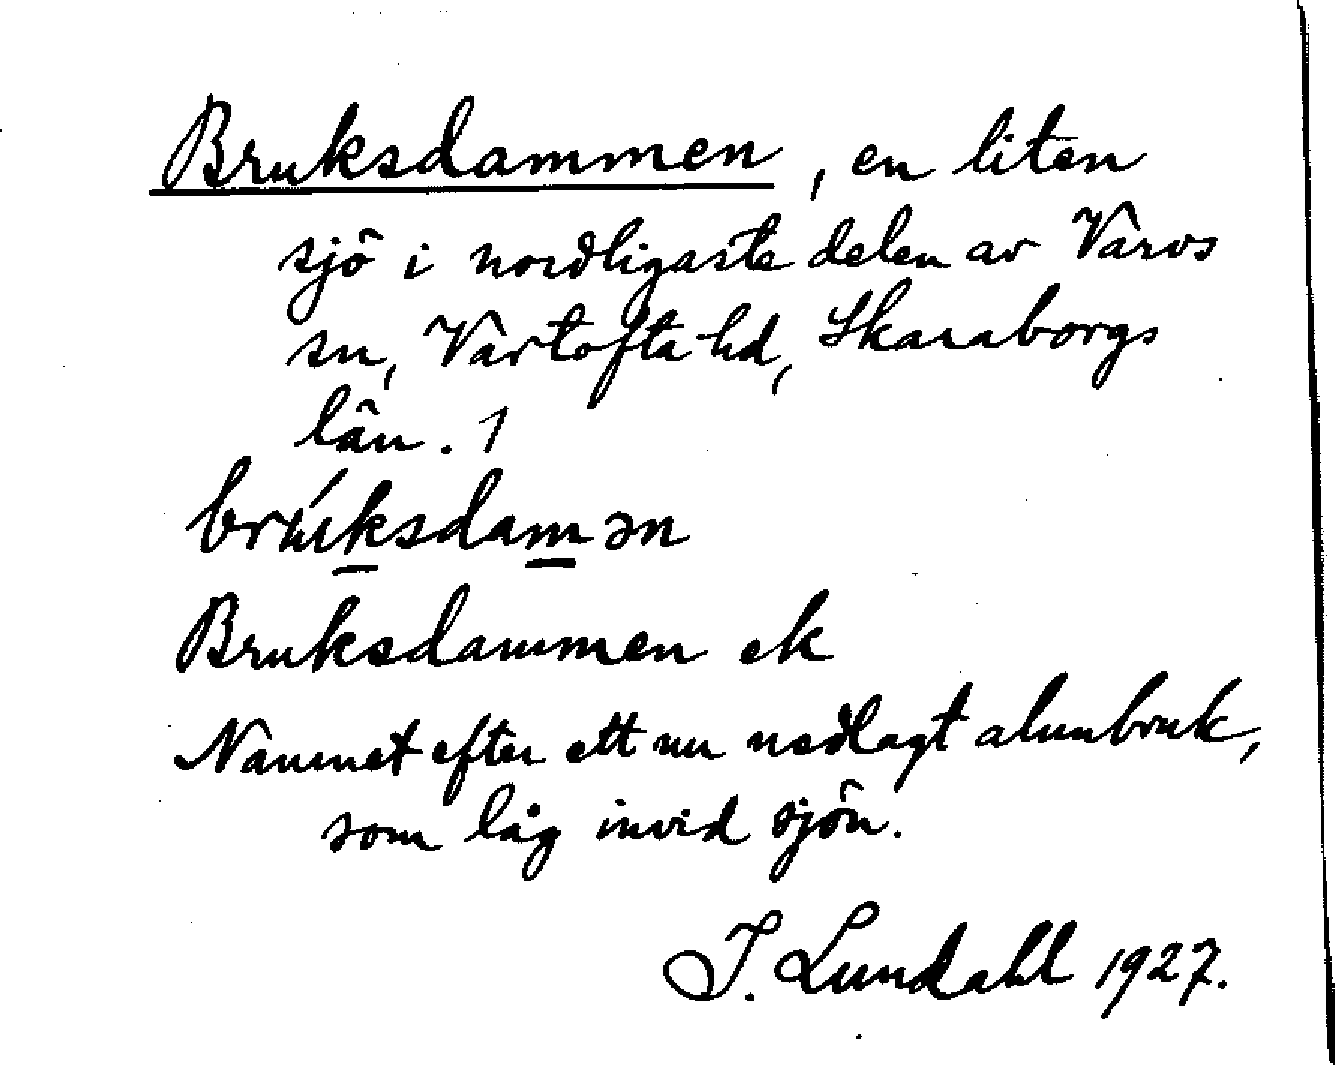 Bruksdammen, en liten
sjö i nordligaste delen av Varvs
sn, Vartofta hd, Skaraborgs
län. 1
brúksdamən
Bruksdammen ek
Namnet efter ett nu nedlagt alunbruk,
som låg invid sjön.
I. Lundahl 1927.